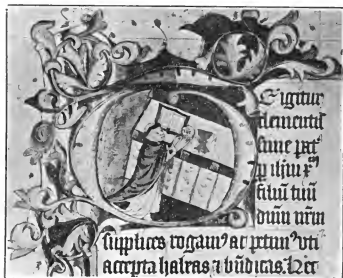 E igitur
clementiſ
ſime pat̃
ꝑ iħm x̃ꝰ
filiū tuū
dñm nr̃m
ſupplices rogamꝰ ac petimꝰ vti
accepta habeas ⁊ bñdicas. Hec